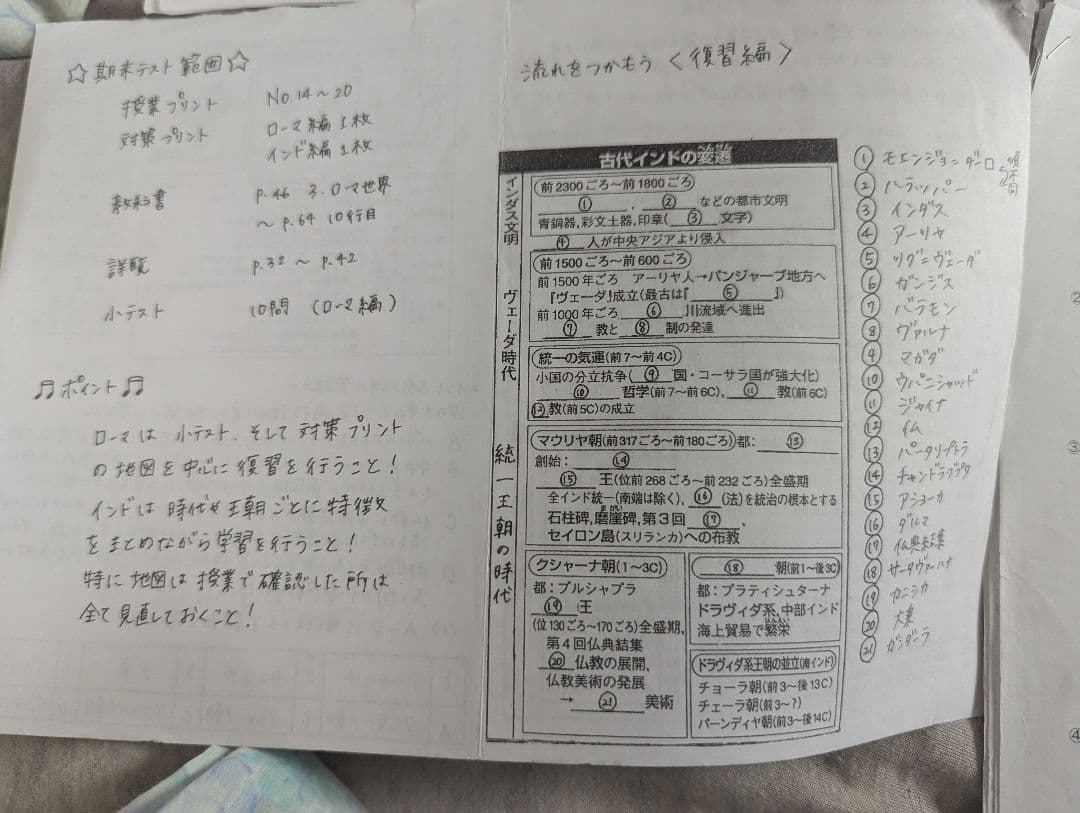 ☆期末テスト範囲☆
授業プリント No.14〜20
対策プリント ローマ編1枚
インド編1枚
教科書 p.46 3.ローマ世界
〜p.64 10行目
詳覧 p.32〜p.42
小テスト 10問（ローマ編）
♫ポイント♫
ローマは小テスト、そして対策プリント
の地図を中心に復習を行うこと！
インドは時代や王朝ごとに特徴
をまとめながら学習を行うこと！
特に地図は授業で確認した所は
全て見直しておくこと！
流れをつかもう〈復習編〉
古代インドの変遷
へんせん
インダス文明
前2300ごろ〜前1800ごろ
①，②などの都市文明
青銅器,彩文土器,印章(③文字)
④人が中央アジアより侵入
ヴェーダ時代
前1500ごろ〜前600ごろ
前1500年ごろ アーリヤ人→パンジャーブ地方へ
『ヴェーダ』成立(最古は『⑤』)
前1000年ごろ⑥川流域へ進出
⑦教と⑧制の発達
統一の気運(前7〜前4C)
小国の分立抗争(⑨国・コーサラ国が強大化)
⑩哲学(前7〜前6C),⑪教(前6C)
⑫教(前5C)の成立
統一王朝の時代
マウリヤ朝(前317ごろ〜前180ごろ)都：⑬
創始：⑭
⑮王(位前268ごろ〜前232ごろ)全盛期
全インド統一(南端は除く),⑯(法)を統治の根本とする
石柱碑,磨崖碑,第3回⑰，
まがい
セイロン島(スリランカ)への布教
クシャーナ朝(1〜3C)
都：プルシャプラ
⑲王
(位130ごろ〜170ごろ)全盛期,
第4回仏典結集
⑳仏教の展開,
仏教美術の発展
→㉑美術
⑱朝(前1〜後3C)
都：プラティシュターナ
ドラヴィダ系,中部インド
海上貿易で繁栄
はんえい
ドラヴィダ系王朝の並立(南インド)
チョーラ朝(前3〜後13C)
チェーラ朝(前3〜?)
パーンディヤ朝(前3〜後14C)
①モエンジョ=ダーロ
②ハラッパー
順不同
③インダス
④アーリヤ
⑤リグ=ヴェーダ
⑥ガンジス
⑦バラモン
⑧ヴァルナ
⑨マガダ
⑩ウパニシャッド
⑪ジャイナ
⑫仏
⑬パータリプトラ
⑭チャンドラグプタ
⑮アショーカ
⑯ダルマ
⑰仏典結集
⑱サータヴァーハナ
⑲カニシカ
⑳大乗
㉑ガンダーラ
③
④